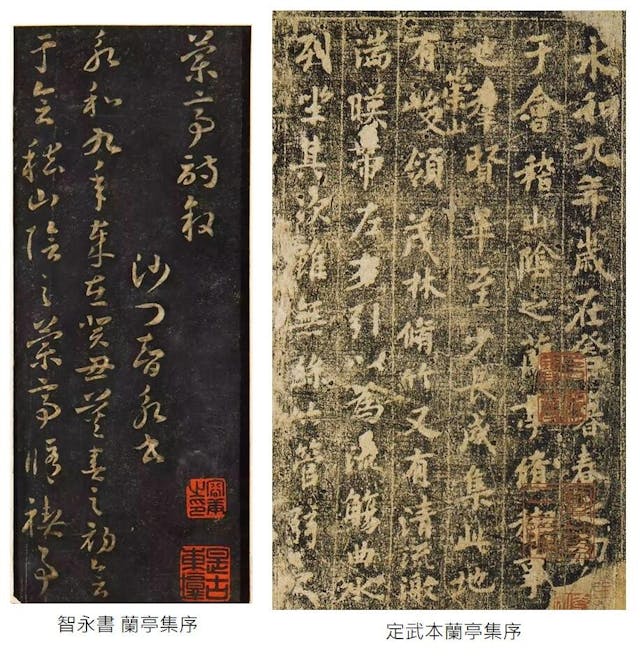 蘭亭詩叙
沙门智永書
永和九年歲在癸丑暮春之初會
于會稽山陰之蘭亭脩禊事
永和九年歲在癸丑暮春之初會
于會稽山陰之蘭亭脩稧事
也羣賢畢至少長咸集此地
崇山
有峻領茂林脩竹又有清流激
湍暎帶左右引以為流觴曲水
列坐其次雖無絲竹管弦之
智永書 蘭亭集序
定武本蘭亭集序